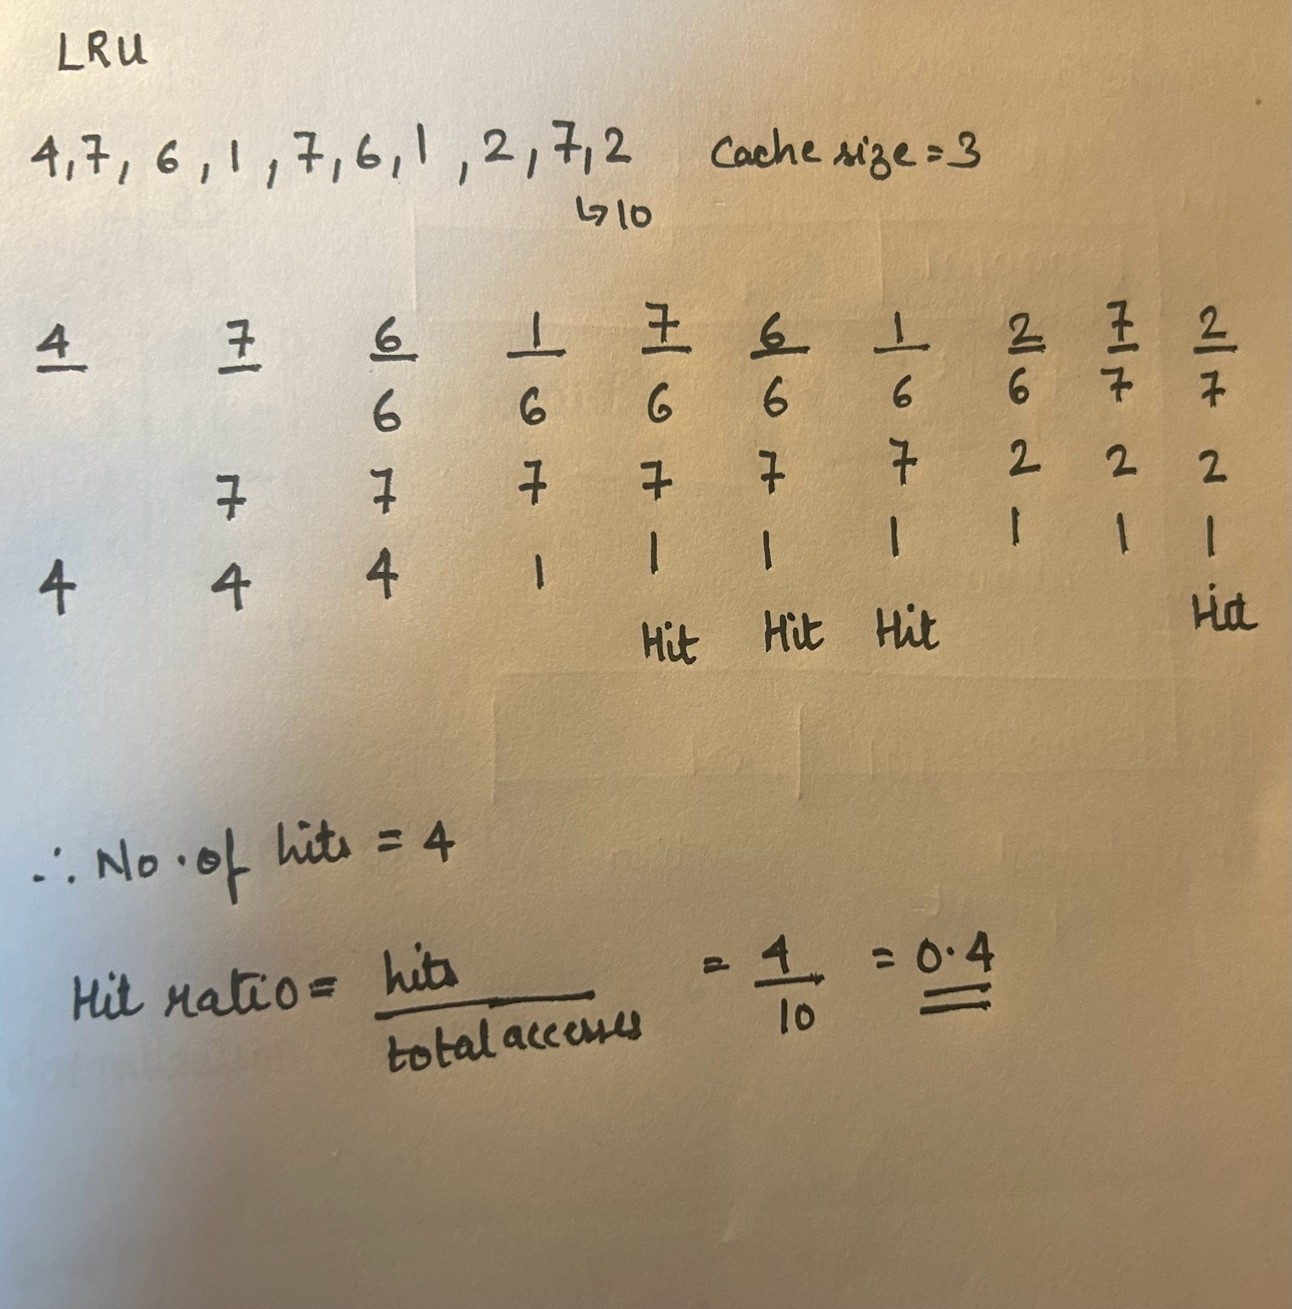 LRU
4,7, 6, 1, 7, 6, 1, 2, 7, 2 Cache size = 3
↳10
4 7 6 1 7 6 1 2 7 2
6 6 6 6 6 6 7 7
7 7 7 7 7 7 2 2 2
4 4 4 1 1 1 1 1 1 1
Hit Hit Hit Hit
∴ No. of hits = 4
Hit ratio = hits / total accesses = 4 / 10 = 0.4